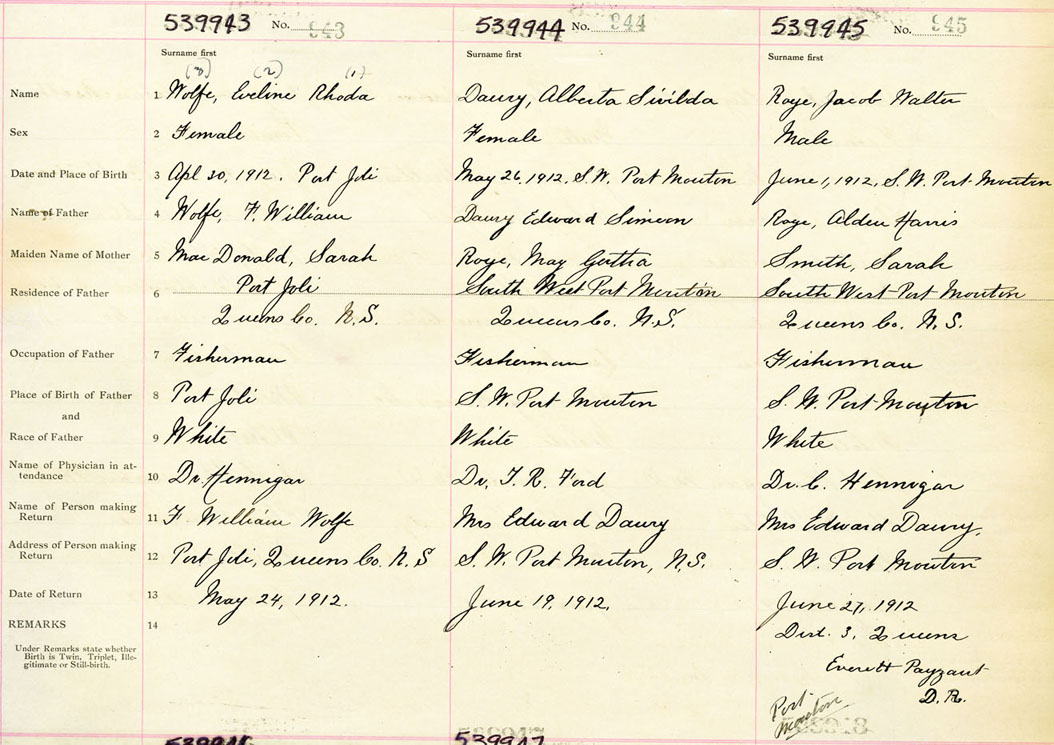 539943 No. 943 539944 No. 944 539945 No. 945
Surname first Surname first Surname first
(3) (2) (1)
Name 1 Wolfe, Eveline Rhoda Daury, Alberta Sivilda Roye, Jacob Walter
Sex 2 Female Female Male
Date and Place of Birth 3 Apl 30, 1912. Port Joli May 26, 1912, S.W. Port Mouton June 1, 1912, S.W. Port Mouton
Name of Father 4 Wolfe, F. William Daury Edward Simeon Roye, Alden Harris
Maiden Name of Mother 5 MacDonald, Sarah Roye, May Smith, Sarah
Residence of Father 6 Port Joli South West Port Mouton South West Port Mouton
Queens Co. N.S. Queens Co. N.S. Queens Co. N.S.
Occupation of Father 7 Fisherman Fisherman Fisherman
Place of Birth of Father 8 Port Joli S.W. Port Mouton S.W. Port Mouton
and
Race of Father 9 White White White
Name of Physician in at-
tendance 10 Dr. Hennigar Dr. T. R. Ford Dr. C. Hennigar
Name of Person making
Return 11 F. William Wolfe Mrs Edward Daury Mrs Edward Daury,
Address of Person making
Return 12 Port Joli, Queens Co. N.S S.W. Port Mouton, N.S. S.W. Port Mouton
Date of Return 13 May 24, 1912. June 19, 1912, June 27, 1912
REMARKS 14 Dist. 3, Queens
Under Remarks state whether
Birth is Twin, Triplet, Ille-
gitimate or Still-birth.
Everett Payzant
D.R.
Port
Mouton